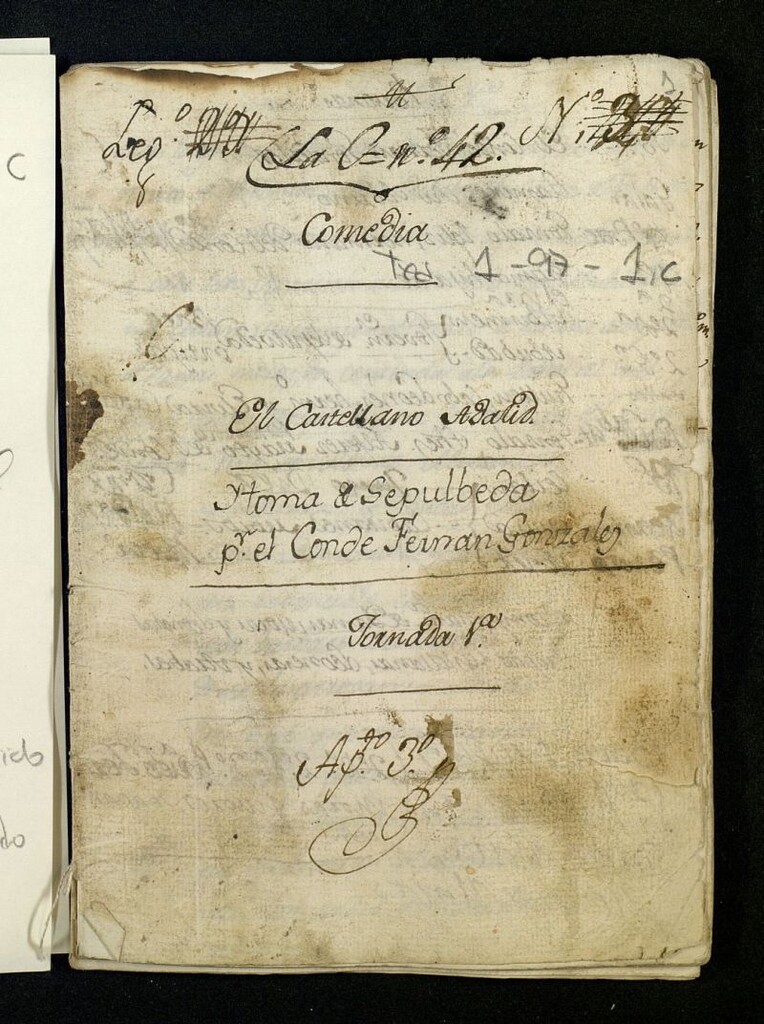 Leg.º
Nº
La C= nº. 42.
Comedia
Tea 1-97-1, c
El Castellano Adalid.
Y toma de Sepulbeda
pr. el Conde Fernan Gonzalez
Jornada 1.ª
Ap.to 3.º
C